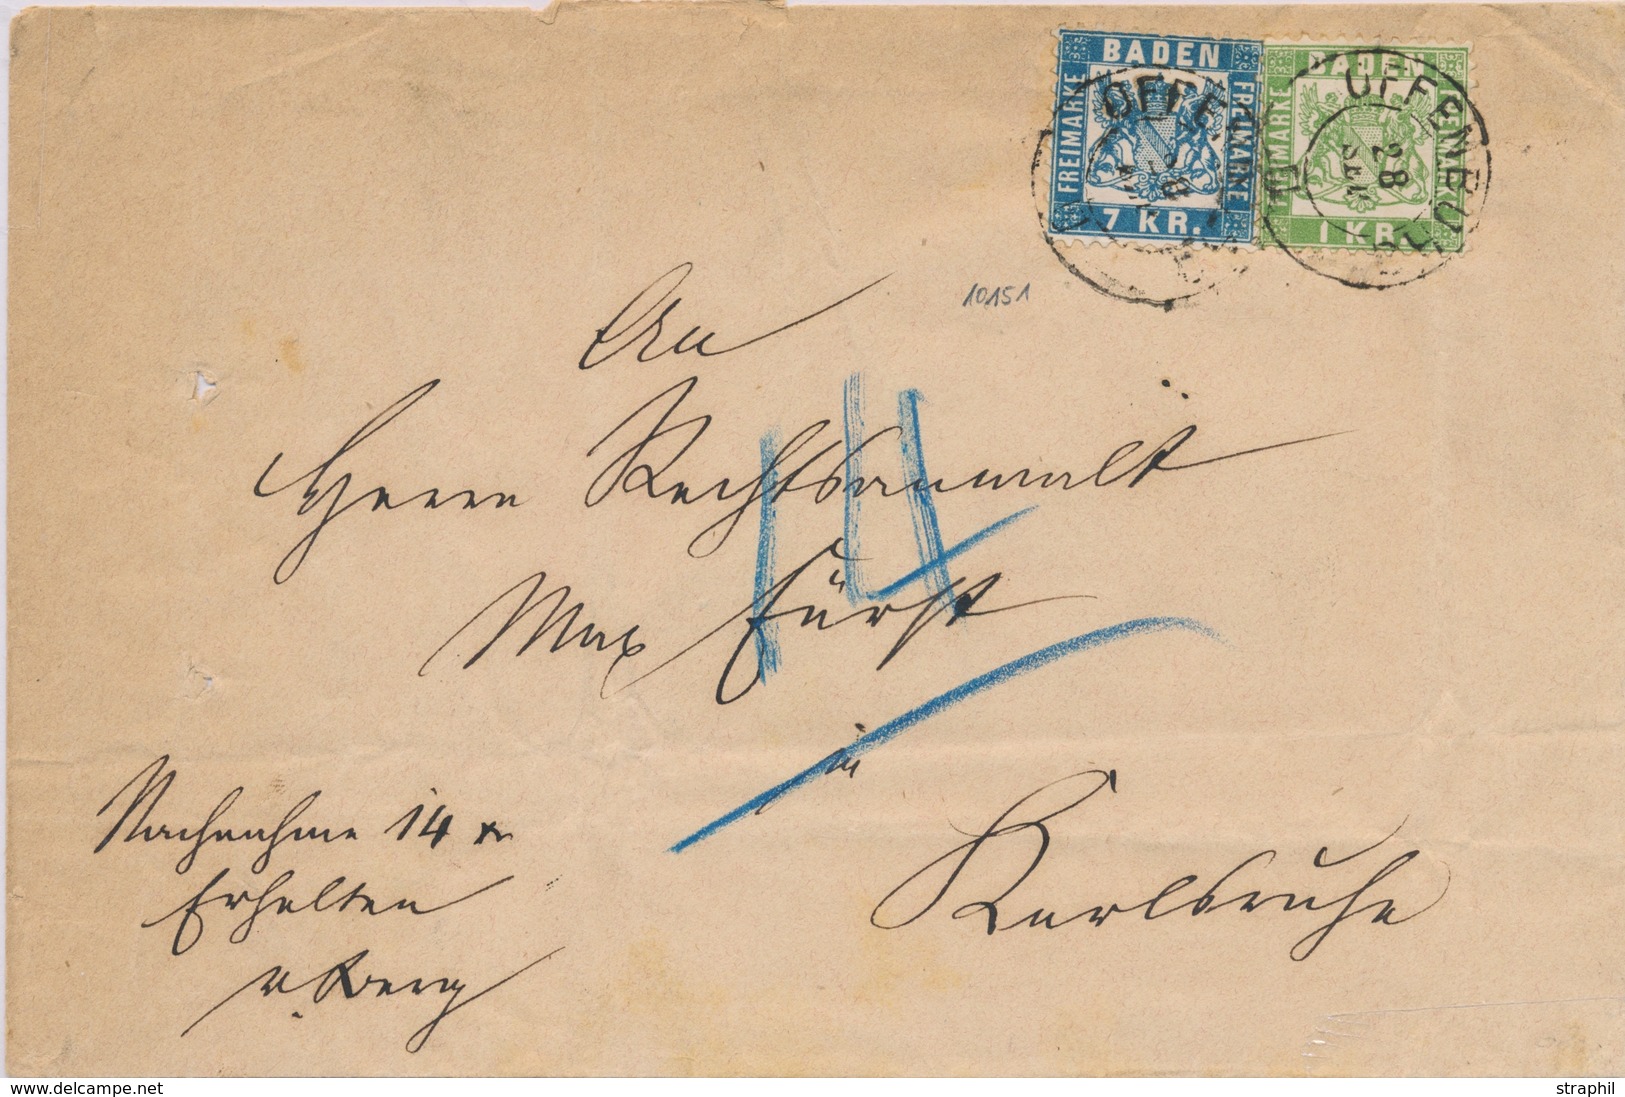 BADEN
FREIMARKE
FREIMARKE
7 KR.
BADEN
FREIMARKE
FREIMARKE
1 KR.
OFFENBURG
28
10151
An
Herrn Rechtsanwalt
Max Fürst
in
Karlsruhe
14
Nachnahme 14 xr
Erhalten
delcampe.net
straphil